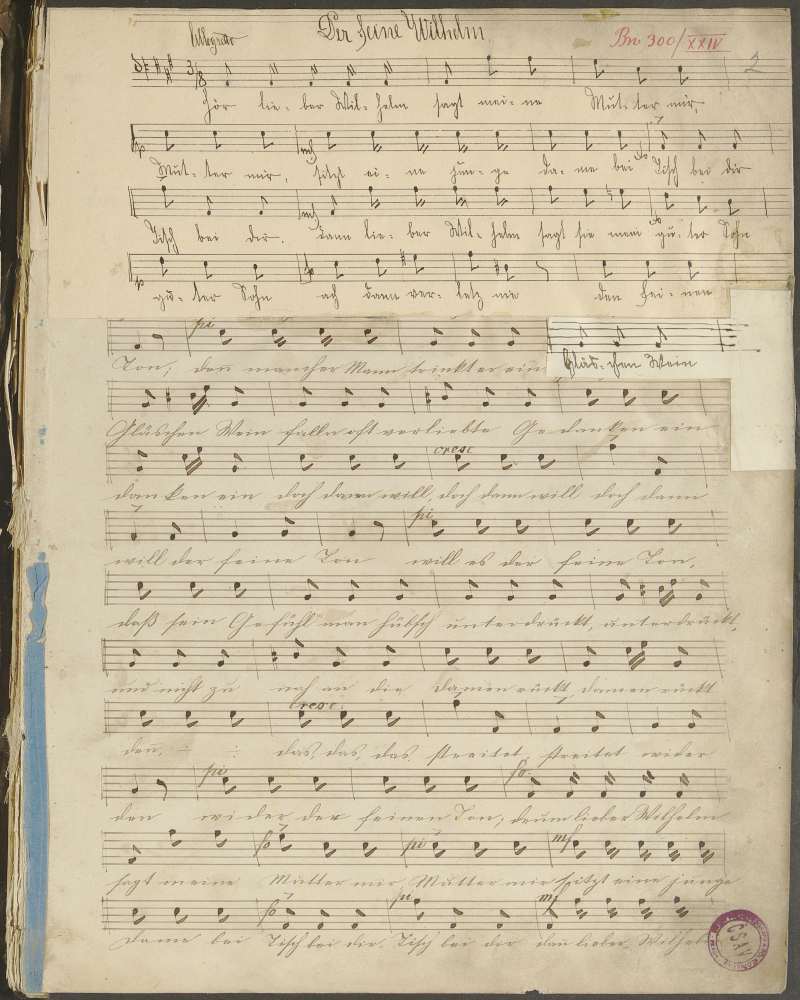 Der feine Wilhelm
Allegretto
Bm 300/XXIV
2
Hör lie- ber Wil- helm sagt mei- ne Mut- ter mir,
p mf
Mut- ter mir, sitzt ei- ne jun- ge Da- me bei Tisch bei dir
mf
Tisch bei dir. dann lie- ber Wil- helm sagt sie mein gu- ter Sohn
p
gu- ter Sohn ach dann ver- letz nie den fei- nen
pi
Ton, denn mancher Mann trinkt er ein
Gläs- chen Wein
Gläschen Wein falln oft verliebte Gedanken ein
cresc
danken ein doch dann will, doch dann will doch dann
pi
will der feine Ton will es der feine Ton,
daß sein Gefühl man hübsch unterdrückt, unterdrückt,
und nicht zu nah an die Damen rückt, Damen rückt
cresc.
denn, das, das, das streitet, streitet wider
pi fo
den wider den feinen Ton, drum lieber Wilhelm
fo pi mf
sagt meine Mutter mir Mutter mir sitzt eine junge
fo pi mf
Dame bei Tisch bei dir Tisch bei dir dan lieber Wilhelm
ČSAV